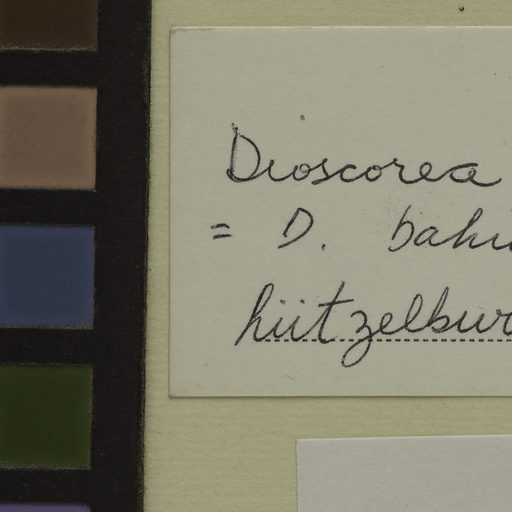 Dioscorea
= D. bahi
hütZelbur